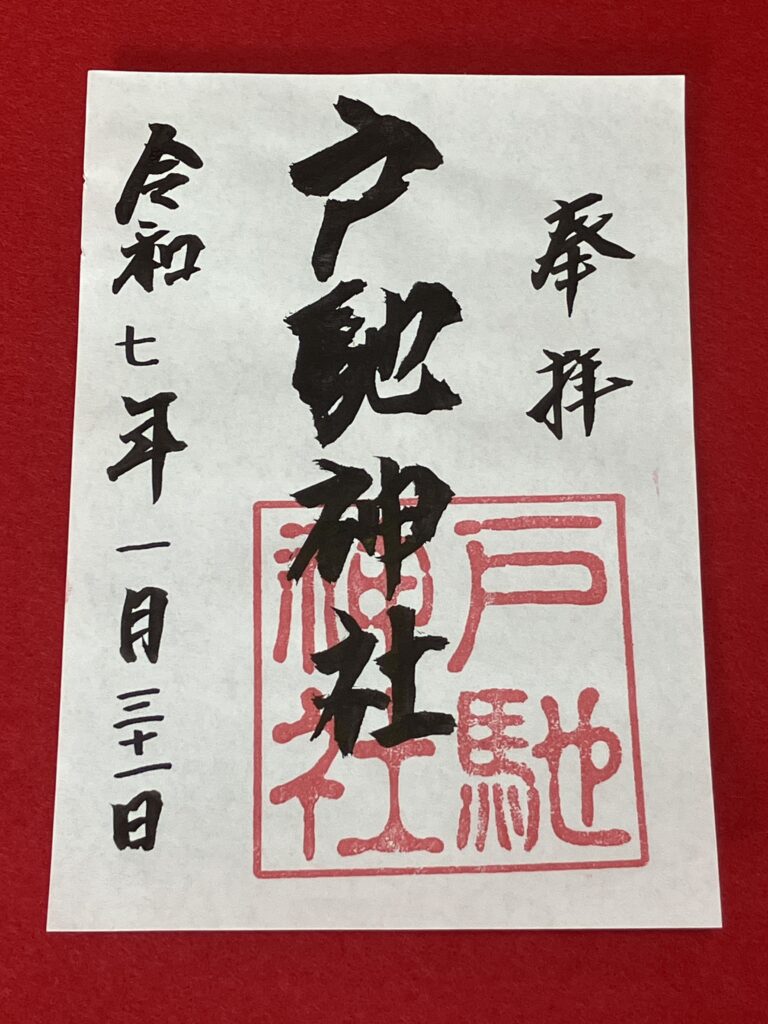 奉拝
戸馳神社
戸馳
神社
令和七年一月三十一日